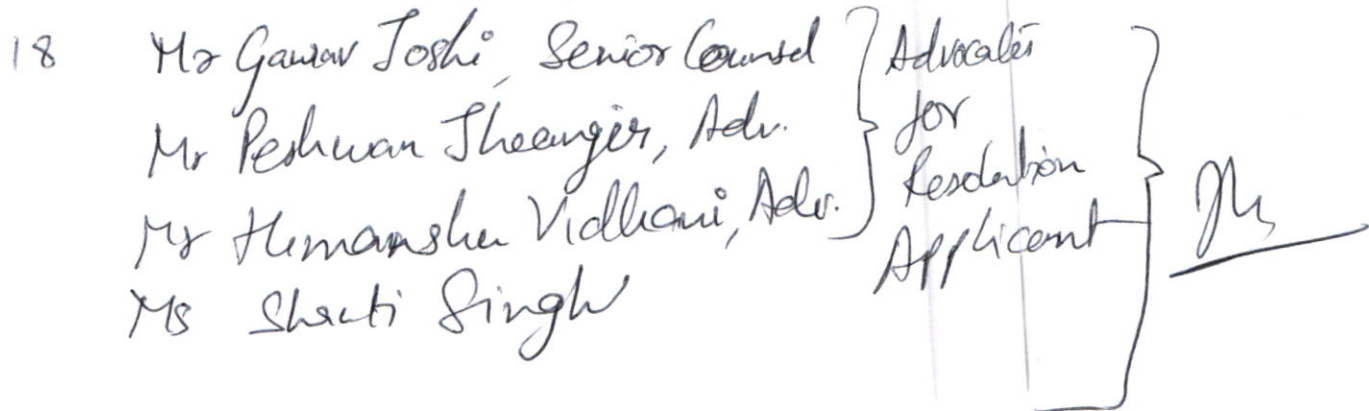 18 Mr Gaurav Joshi, Senior Counsel
Mr Peshwan Jheangir, Adv.
Mr Himanshu Vidhani, Adv.
Ms Shruti Singh
Advocates
for
Resolution
Applicant